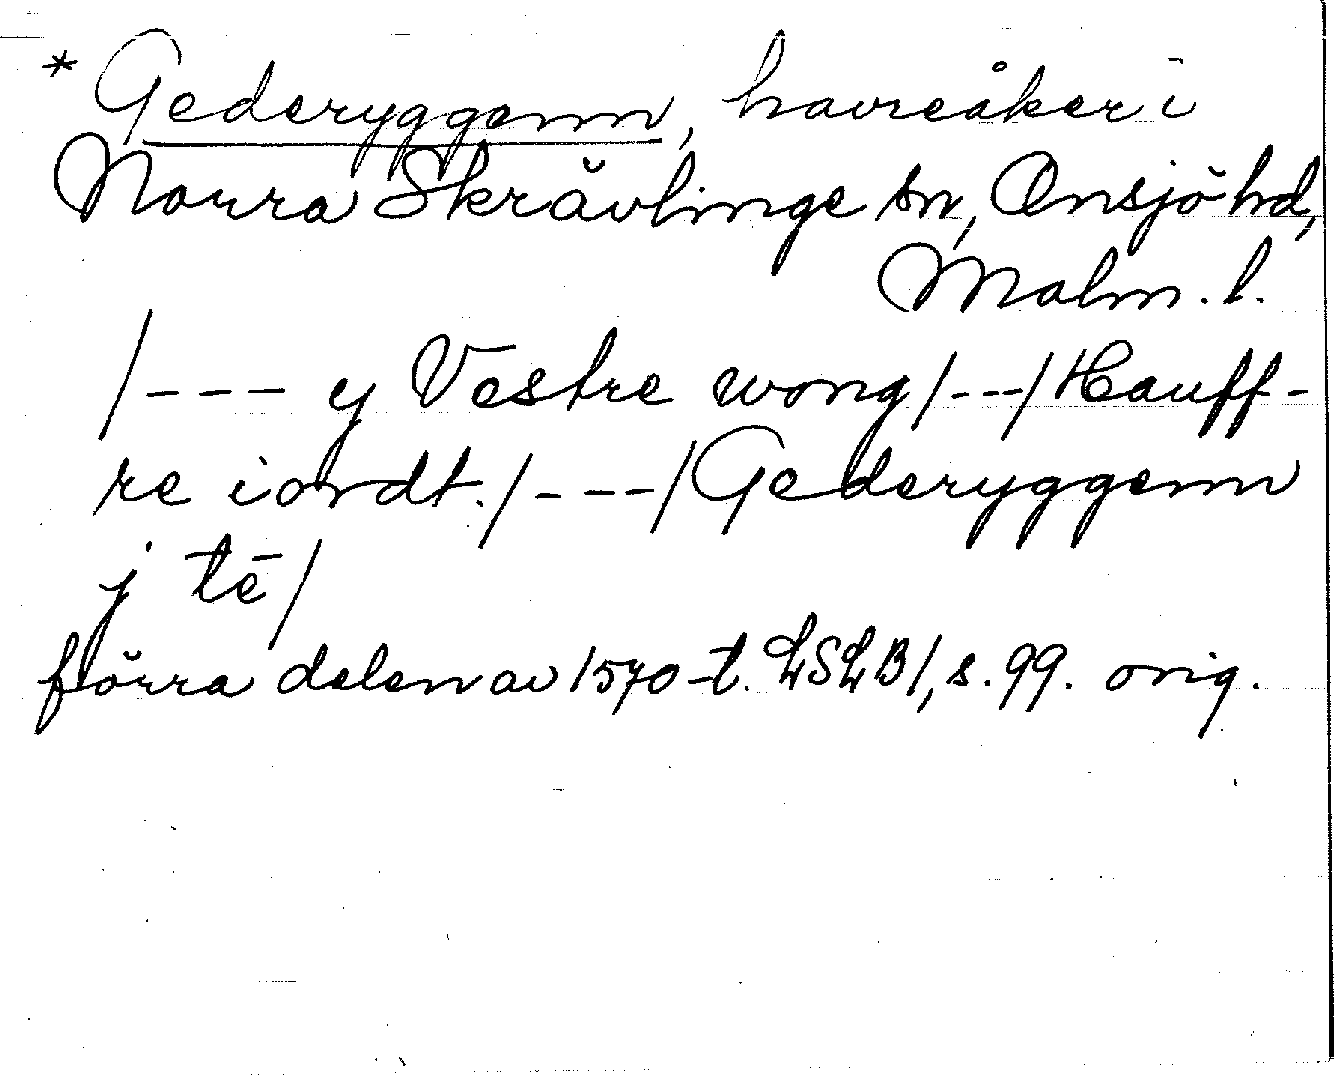 * Gederyggenn, havreåker i
Norra Skrävlinge sn, Onsjö hd,
Malm. l.
/--- y Vestre wong/--/Hauff-
re iordt./---/Gederyggenn
j tē/
förra delen av 1570-t. LSLB1, s. 99. orig.